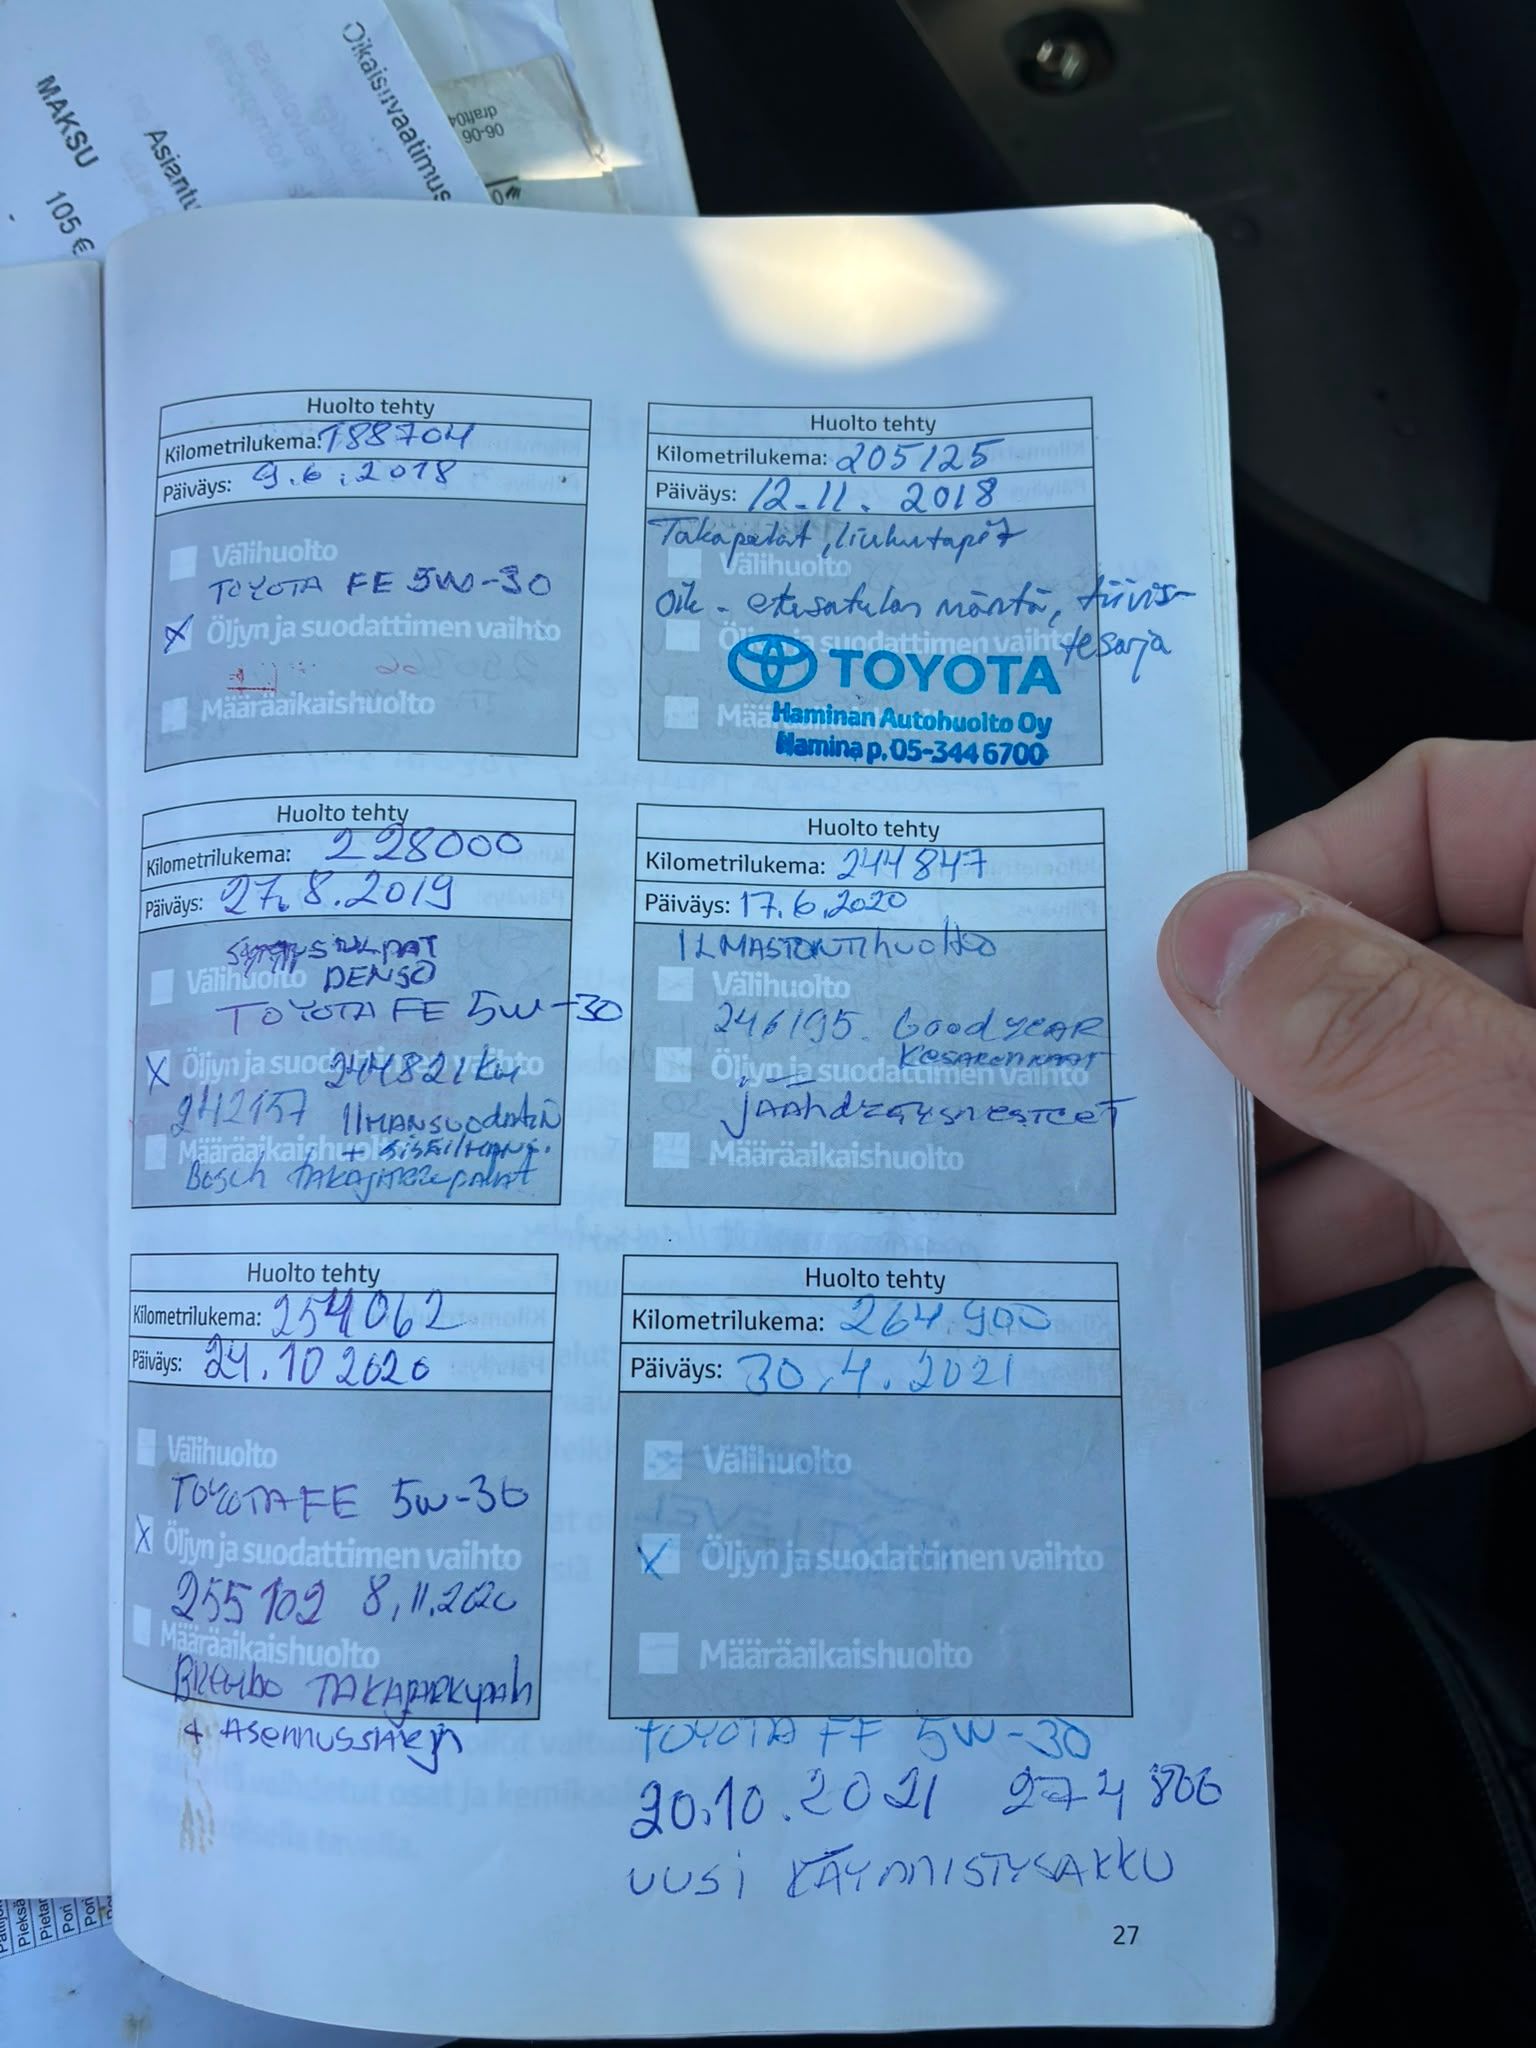 Oikaisuvaatimus
MAKSU 105 €
06-06
draft04
Huolto tehty
Kilometrilukema: 188704
Päiväys: 9.6.2018
Välihuolto
TOYOTA FE 5W-30
X Öljyn ja suodattimen vaihto
Määräaikaishuolto
Huolto tehty
Kilometrilukema: 205125
Päiväys: 12.11.2018
Takapalat, liukutapit
Välihuolto
Oik-etusatulan mäntä, tiivis-
Öljyn ja suodattimen vaihto
tesarja
TOYOTA
Määräaikaishuolto
Haminan Autohuolto Oy
Hamina p. 05-344 6700
Huolto tehty
Kilometrilukema: 228000
Päiväys: 27.8.2019
Välihuolto
DENSO
TOYOTA FE 5W-30
X Öljyn ja suodattimen vaihto
244821 km
242157 IlMANSUODATIN
Määräaikaishuolto
+ SISÄILMANS.
Bosch TAKAJARRUpalat
Huolto tehty
Kilometrilukema: 244847
Päiväys: 17.6.2020
ILMASTOINTIhuolto
Välihuolto
246195. GoodYEAR
KESÄRENKAAT
Öljyn ja suodattimen vaihto
jÄÄhdYTYSNESTEET
Määräaikaishuolto
Huolto tehty
Kilometrilukema: 254062
Päiväys: 24.10 2020
Välihuolto
TOYOTA FE 5W-30
X Öljyn ja suodattimen vaihto
255102 8.11.2020
Määräaikaishuolto
BREMbo TAKAjARRUpalat
+ ASENNUSSARJA
Huolto tehty
Kilometrilukema: 264.900
Päiväys: 30.4.2021
Välihuolto
X Öljyn ja suodattimen vaihto
Määräaikaishuolto
TOYOTA FE 5W-30
20.10.2021 274 800
UUSI KÄYNNISTYSAKKU
27